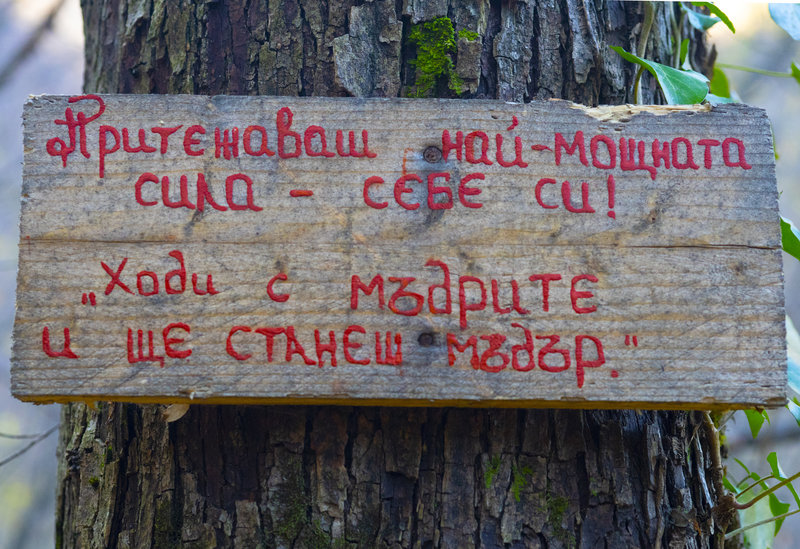 Притежаваш най-мощната
сила - себе си!
„Ходи с мъдрите
и ще станеш мъдър."